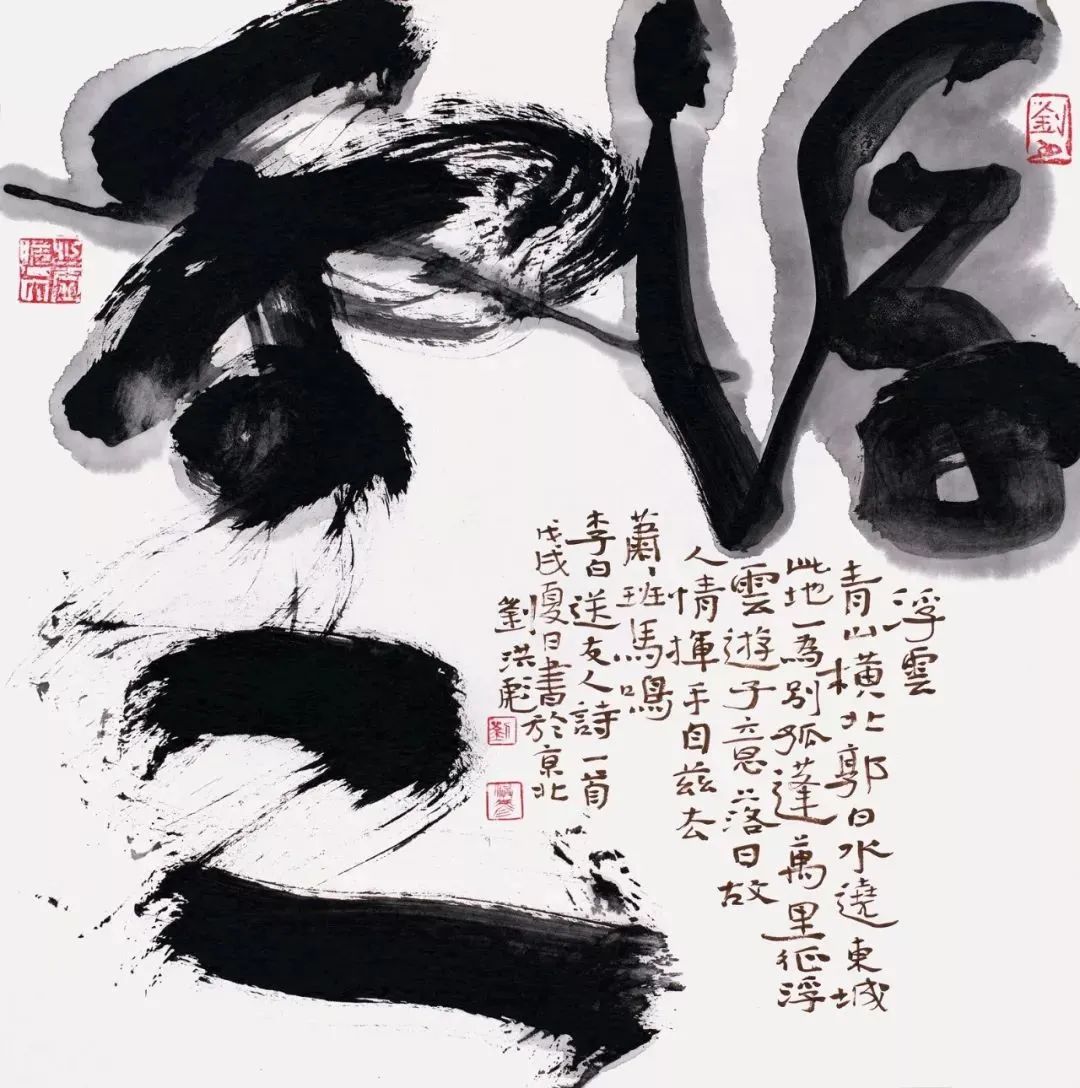 浮
雲
浮雲
青山橫北郭白水遶東城
此地一為別孤蓬萬里征浮
雲遊子意落日故
人情揮手自茲去
蕭〻班馬鳴
李白送友人詩一首
戊戌夏日書於京北
劉洪彪
劉